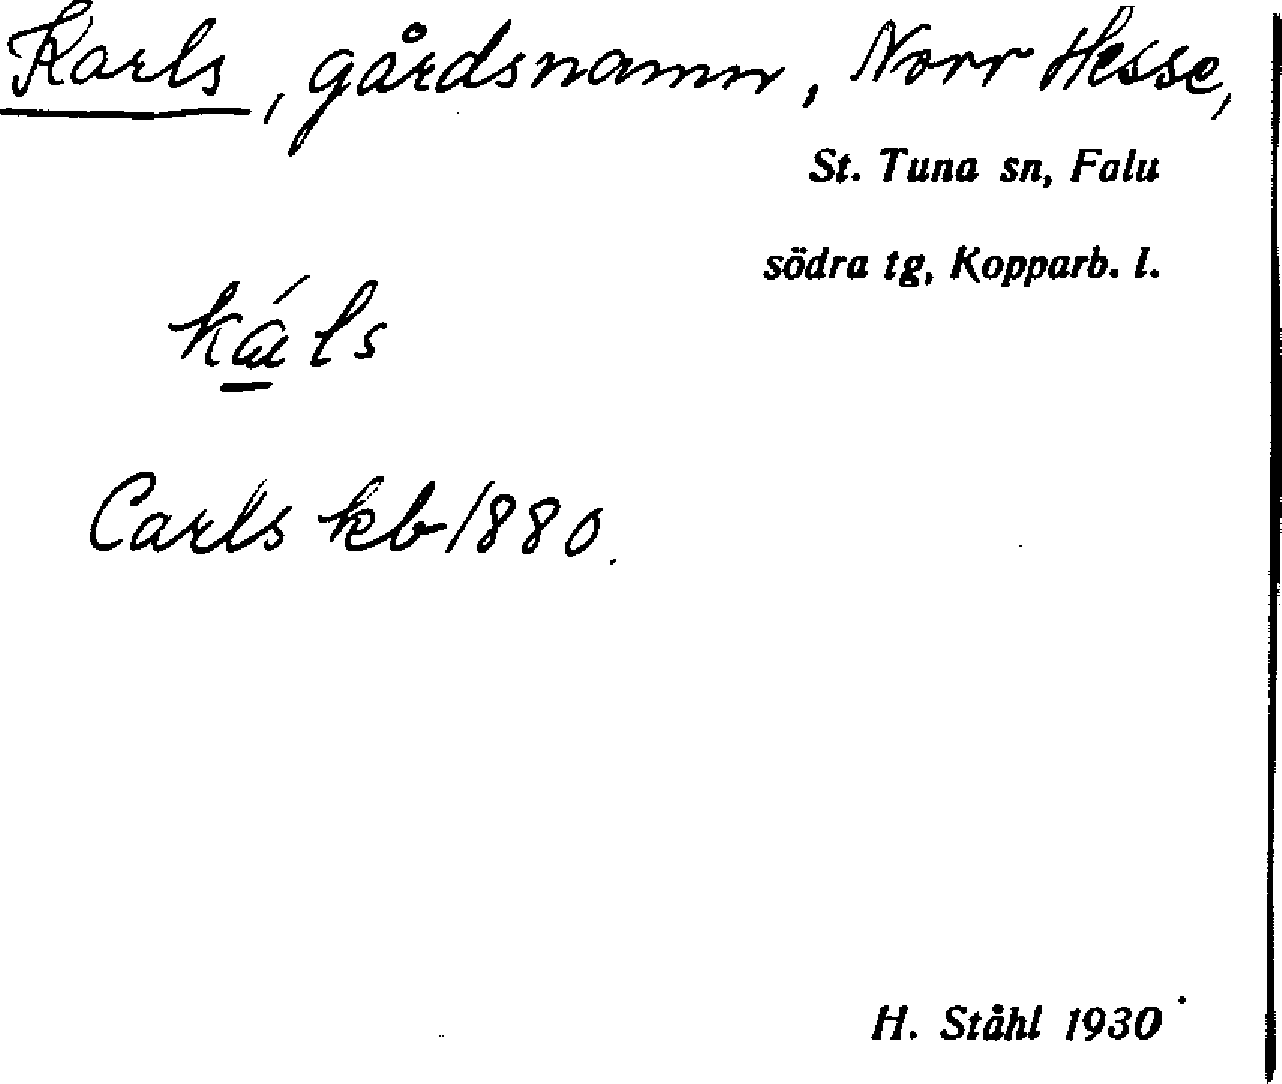 Karls, gårdsnamn, Norr Hesse,
St. Tuna sn, Falu
södra tg, Kopparb. l.
ká̲ls
Carls kb 1880.
H. Ståhl 1930